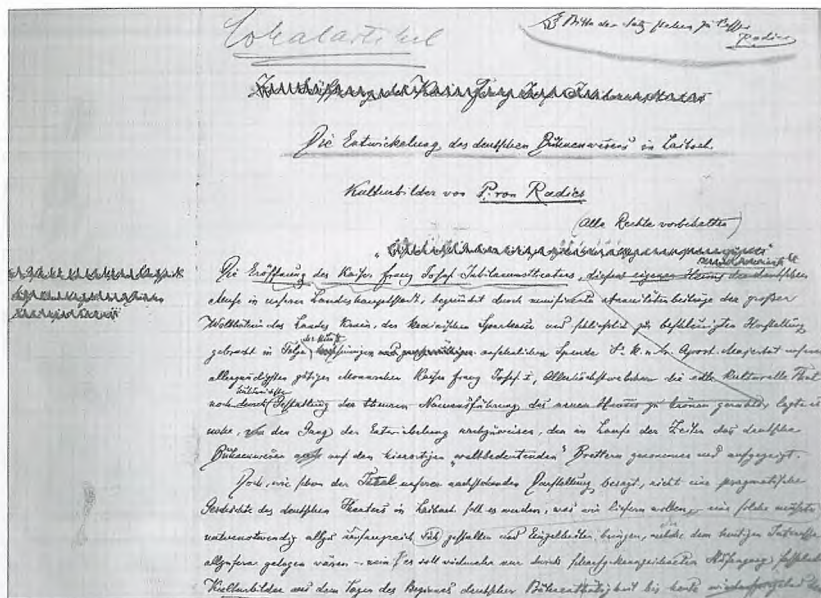 Lokalartikel
Bitte den Satz stehen zu lassen
Radics
Die Entwickelung des deutschen Bühnenwesens in Laibach.
Kulturbilder von P. von Radics
(Alle Rechte vorbehalten)
Die Eröffnung des Kaiser Franz Josef Jubiläumstheaters, dieses eigenen Heims der deutschen
Muse in unserer Landeshauptstadt, begründet durch munificente der großen
Wohlthäterin des Landes Krain, der krainischen Sparkasse und schließlich zur beschleunigten Herstellung
gebracht in Folge der ansehnlichen Spende S. k. u. k. Apost. Majestät unseres
allergnädigsten gütigen Monarchen Kaiser Franz Josef I, Allerhöchstwelcher die edle kulturelle That
noch durch Gestattung der theuren Namensführung des neuen Hauses zu krönen geruhte, legte es
nahe, den Gang der Entwickelung nachzuweisen, den im Laufe der Zeiten das deutsche
Bühnenwesen auf den hierortigen „weltbedeutenden“ Brettern genommen und aufgezeigt.
Doch, wie schon der Titel unserer nachstehenden Darstellung besagt, nicht eine pragmatische
Geschichte des deutschen Theaters in Laibach soll es werden, was wir liefern wollen, eine solche müßte
naturnotwendig allzu umfangreich sich gestalten und Einzelheiten bringen, welche dem heutigen Interesse
allzuferne gelegen wären – nein! es soll vielmehr nur durch
Kulturbilder aus den Tagen des Beginnes deutscher Bühnenthätigkeit bis heute